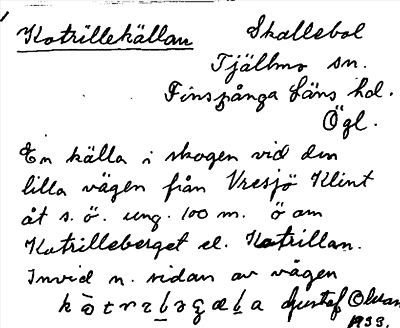 Katrillekällan Skallebol
Tjällmo sn.
Finspånga läns hd.
Ögl.
En källa i skogen vid den
lilla vägen från Vresjö Klint
åt s.ö. ung. 100 m. ö om
Katrilleberget el. Katrillan.
Invid n. sidan av vägen
Gustaf Olsson
1933.